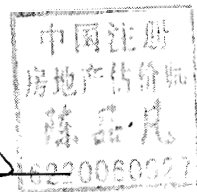 中国注册
房地产估价师
陈
6220060027